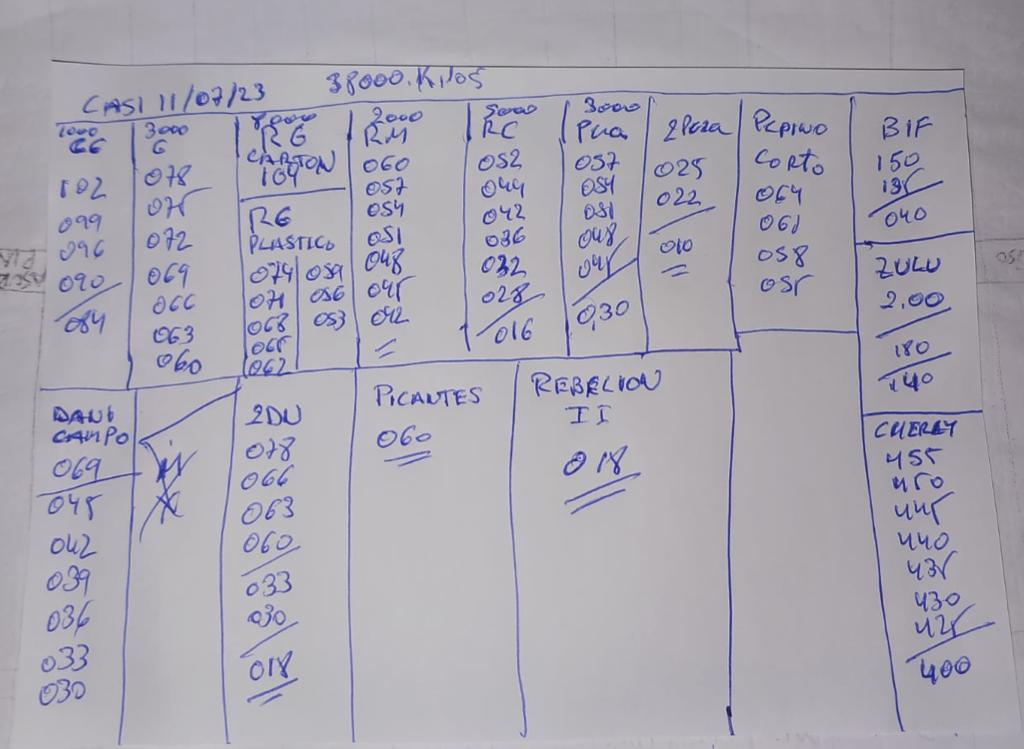 CASI 11/07/23 38000.Kilos
1000
GG
102
099
096
090
084
3000
G
078
075
072
069
066
063
060
8000
RG
CARTON
104
RG
PLASTICO
074 059
071 056
068 053
065
062
2000
RM
060
057
054
051
048
045
042
5000
RC
052
044
042
036
032
028
016
3000
057
054
051
048
045
0,30
025
022
010
PEPINO
CORTO
064
061
058
055
BIF
150
135
040
ZULU
2.00
180
140
DANI
CAMPO
069
045
042
039
036
033
030
078
066
063
060
033
030
018
PICANTES
060
REBELION
II
018
CHERRY
455
450
445
440
435
430
425
400